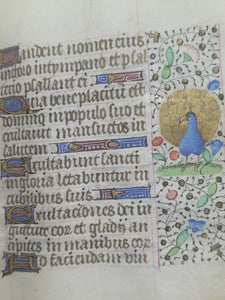 Laudent nomen eius
in choro in tympano et psal
terio psallant ei
Quia bene placitu est
domino in populo suo et
exaltauit mansuetos in
salutem
Exultabunt sancti
in gloria letabuntur in
cubilibus suis
Exultaciones dei in
gutture eor et glady an
cipites in manibus eor
Ad faciendam vin